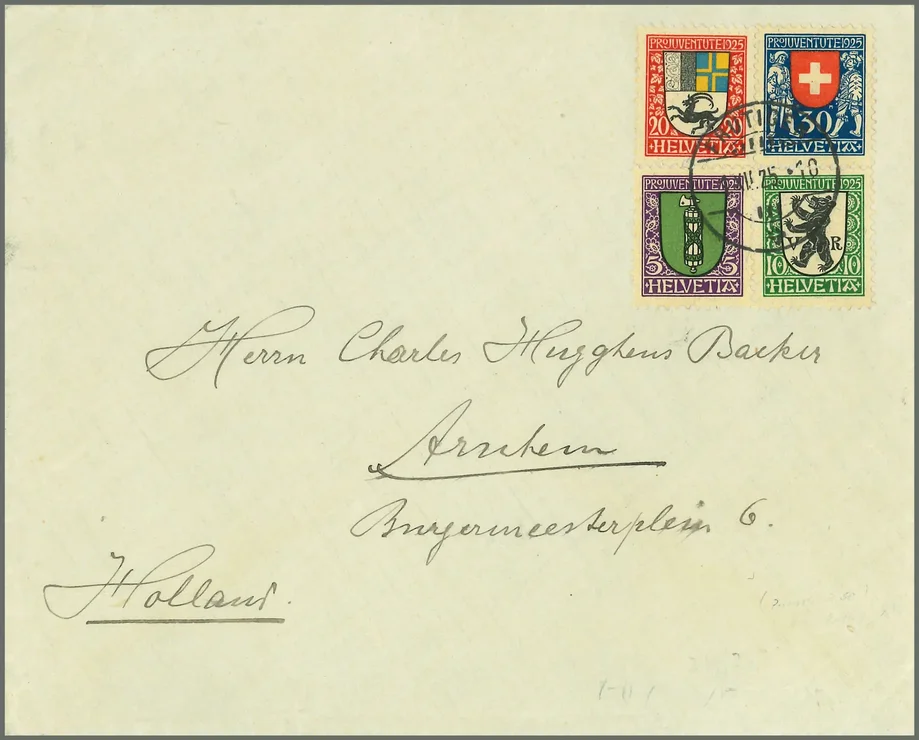 PRO JUVENTUTE 1925 PRO JUVENTUTE 1925
20 20 30
HELVETIA HELVETIA
PRO JUVENTUTE 1925 PRO JUVENTUTE 1925
V R
5 5 10 10
HELVETIA HELVETIA
25 10
Herrn Charles Hugghens Backer
Arnhem
Burgermeesterplein 6.
Holland.